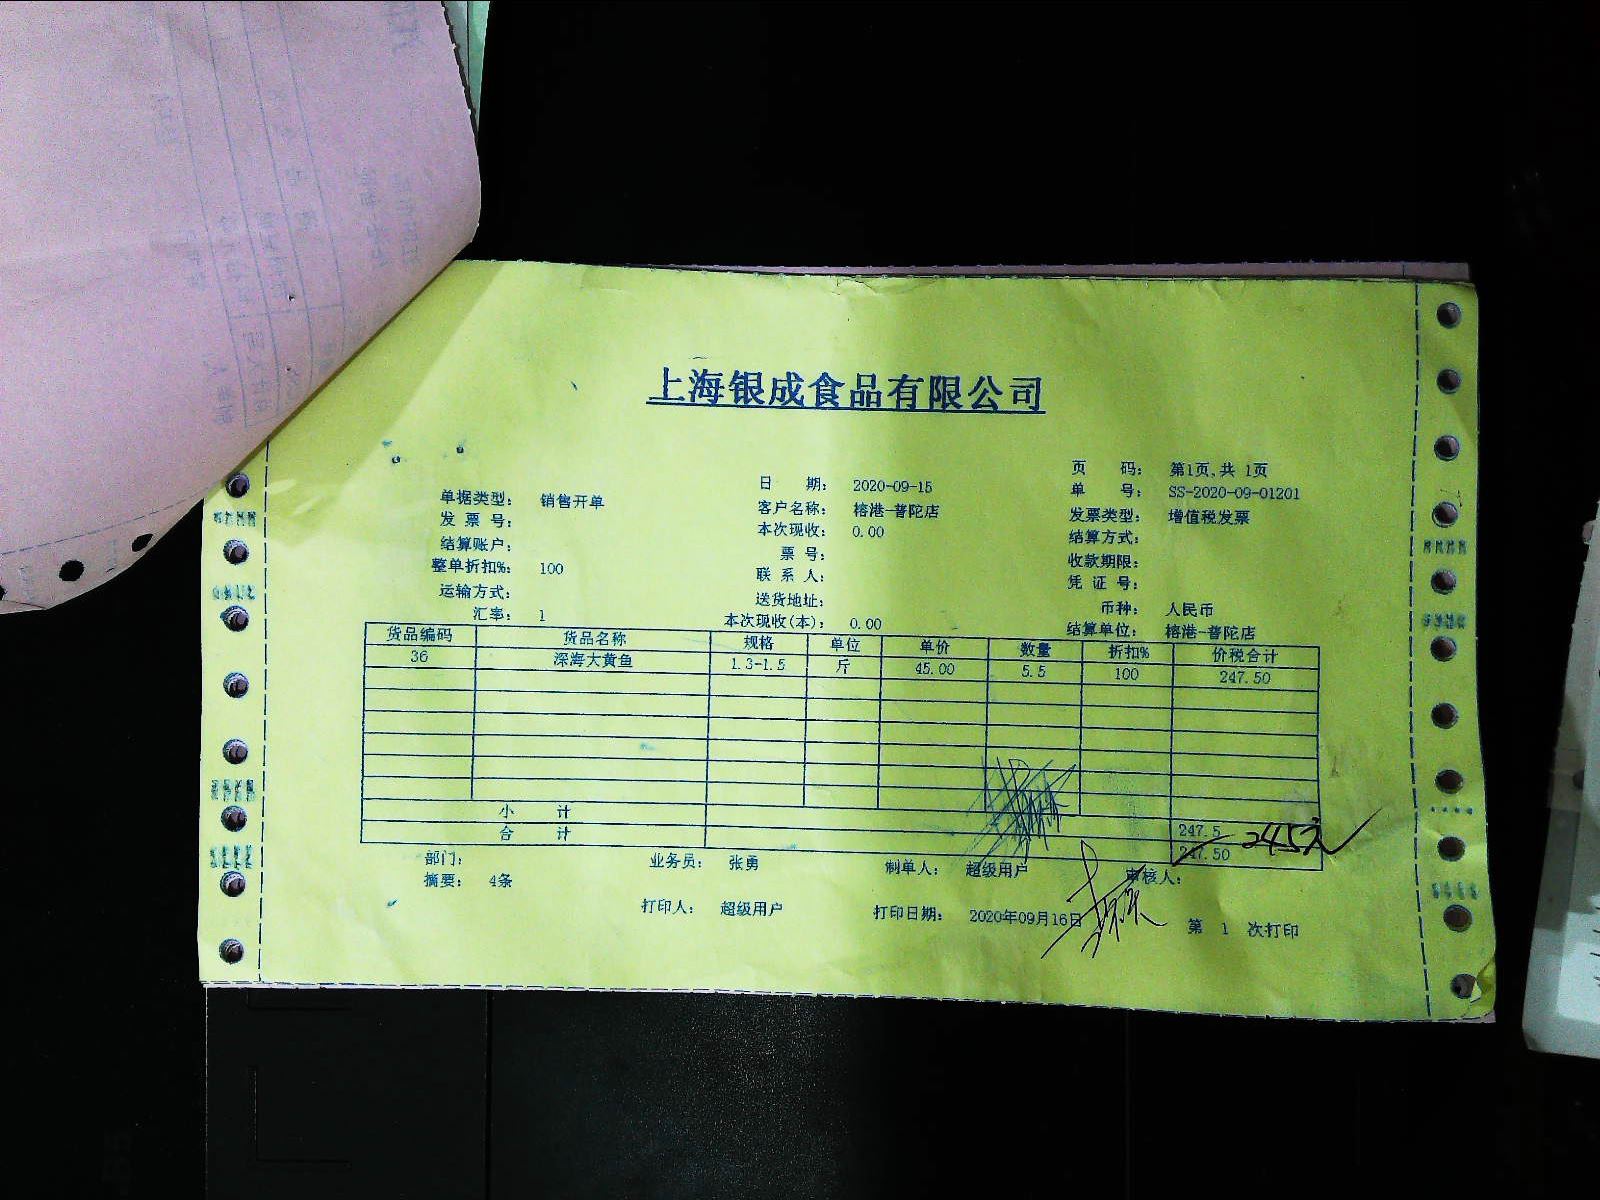 上海银成食品有限公司
页 码： 第1页,共 1页
日 期： 2020-09-15
单 号： SS-2020-09-01201
单据类型： 销售开单
客户名称： 榕港-普陀店
发票类型： 增值税发票
发 票 号：
本次现收： 0.00
结算方式：
结算账户：
票 号：
收款期限：
整单折扣%： 100
联 系 人：
凭 证 号：
运输方式：
送货地址：
币种： 人民币
汇率： 1
本次现收(本)： 0.00
结算单位： 榕港-普陀店
货品编码 货品名称 规格 单位 单价 数量 折扣% 价税合计
36 深海大黄鱼 1.3-1.5 斤 45.00 5.5 100 247.50
小 计 247.5
合 计 247.50
245元
部门： 业务员： 张勇 制单人： 超级用户 审核人：
摘要： 4条
打印人： 超级用户 打印日期： 2020年09月16日 第 1 次打印